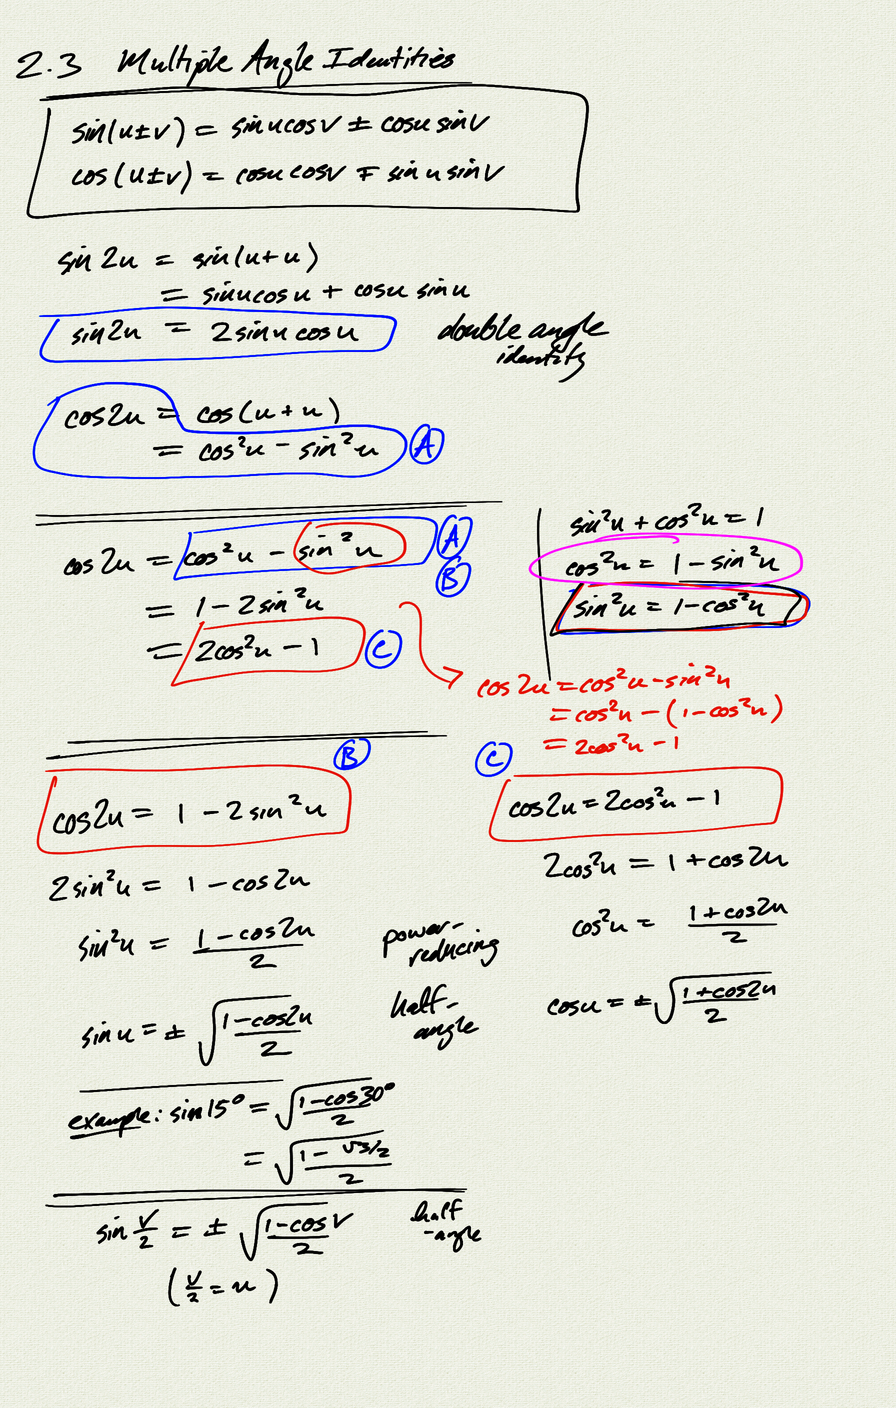 2.3 Multiple Angle Identities
sin(u±v) = sinucosv ± cosu sinv
cos(u±v) = cosu cosv ∓ sinu sinv
sin 2u = sin(u+u)
= sinucosu + cosu sinu
sin2u = 2sinu cosu
double angle
identity
cos2u = cos(u+u)
= cos²u - sin²u
A
cos2u = cos²u - sin²u
A
B
= 1 - 2sin²u
= 2cos²u - 1
C
sin²u + cos²u = 1
cos²u = 1 - sin²u
sin²u = 1-cos²u
cos2u = cos²u - sin²u
= cos²u - (1-cos²u)
= 2cos²u - 1
B
cos2u = 1 - 2sin²u
2sin²u = 1 - cos2u
sin²u = (1-cos2u)/2
power-
reducing
sinu = ± √((1-cos2u)/2)
half-
angle
C
cos2u = 2cos²u - 1
2cos²u = 1 + cos2u
cos²u = (1+cos2u)/2
cosu = ± √((1+cos2u)/2)
example: sin15° = √((1-cos30°)/2)
= √((1-√3/2)/2)
sin v/2 = ± √((1-cosv)/2)
half
-angle
(v/2 = u)